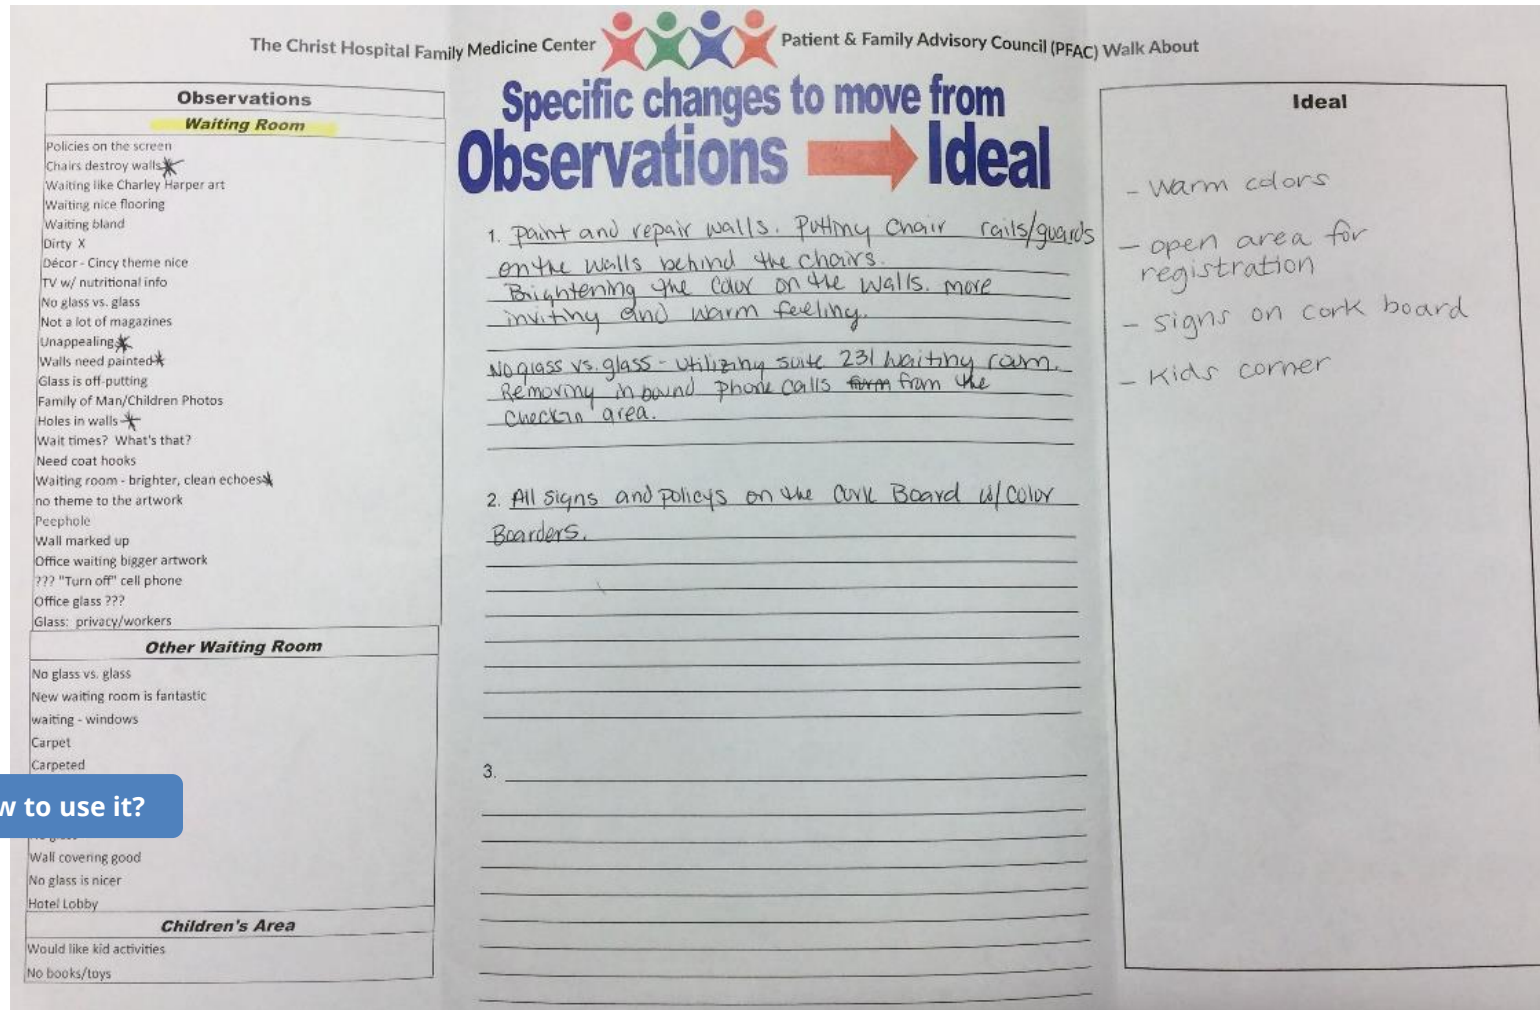 The Christ Hospital Family Medicine Center
Patient & Family Advisory Council (PFAC) Walk About
Observations
Waiting Room
Policies on the screen
Chairs destroy walls
Waiting like Charley Harper art
Waiting nice flooring
Waiting bland
Dirty X
Décor - Cincy theme nice
TV w/ nutritional info
No glass vs. glass
Not a lot of magazines
Unappealing
Walls need painted
Glass is off-putting
Family of Man/Children Photos
Holes in walls
Wait times? What's that?
Need coat hooks
Waiting room - brighter, clean echoes
no theme to the artwork
Peephole
Wall marked up
Office waiting bigger artwork
??? "Turn off" cell phone
Office glass ???
Glass: privacy/workers
Other Waiting Room
No glass vs. glass
New waiting room is fantastic
waiting - windows
Carpet
Carpeted
w to use it?
Wall covering good
No glass is nicer
Hotel Lobby
Children's Area
Would like kid activities
No books/toys
Specific changes to move from
Observations Ideal
1. Paint and repair walls. Putting Chair rails/guards
on the walls behind the chairs.
Brightening the color on the walls. more
inviting and warm feeling.
No glass vs. glass - utilizing suite 231 waiting room.
Removing inbound phone calls from the
checkin area.
2. All signs and policys on the Cork Board w/ color
Boarders.
3.
Ideal
- warm colors
- open area for
registration
- signs on cork board
- Kids corner